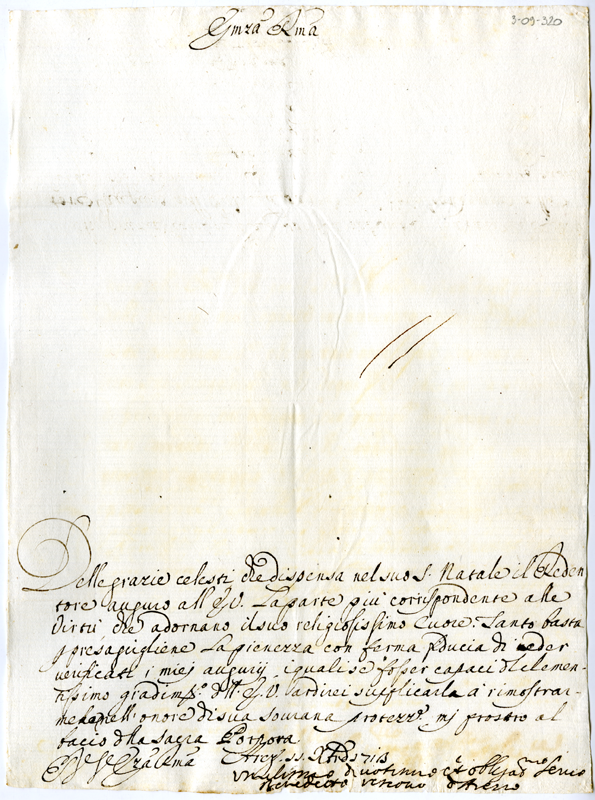 Emza Rma
3-09-320
Delle grazie celesti che dispensa nel suo S. Natale il Reden
tore auguro all' E. V. La parte più corrispondente alle
Virtù che adornano il suo religiosissimo Cuore. Tanto basta
p presagirgliene la pienezza con ferma fiducia di veder
verificati i miej augurij, i quali se fosser capaci di clemen-
tissimo gradimto dell' E. V. ardirei supplicarla a rimostrar-
melo nell' onore di sua sourana protezze. mj prostro al
bacio della sacra Porpora.
Di V. Eza Rma
Umilimo divotimo et obligatmo Servo
Benedetto vescovo